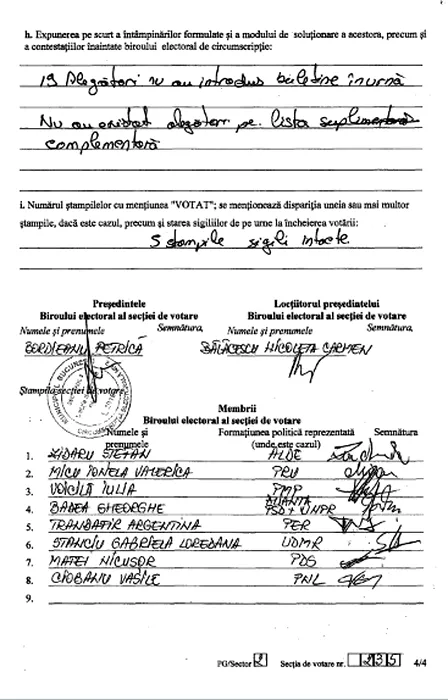 h. Expunerea pe scurt a întâmpinărilor formulate și a modului de soluționare a acestora, precum și
a contestațiilor înaintate biroului electoral de circumscripție:
19 Alegători nu au introdus buletine în urnă
Nu au existat alegători pe lista suplimentară
complementară
i. Numărul ștampilelor cu mențiunea "VOTAT"; se menționează dispariția uneia sau mai multor
ștampile, dacă este cazul, precum și starea sigiliilor de pe urne la încheierea votării:
5 stampile sigilii intacte
Președintele Locțiitorul președintelui
Biroului electoral al secției de votare Biroului electoral al secției de votare
Numele și prenumele Semnătura, Numele și prenumele Semnătura,
BORDIEANU PETRICĂ BĂLĂCESCU NICOLETA CARMEN
Ștampila secției de votare
Membrii
Biroului electoral al secției de votare
Numele și Formațiunea politică reprezentată Semnătura
prenumele (unde este cazul)
1. STEFAN ALDE
2. MICU IONELA VALERICA PRU
3. VOICILĂ IULIA PMP
4. BADEA GHEORGHE ALIANTA PSD + UNPR
5. TRANDAFIR ARGENTINA PER
6. STANCIU GABRIELA LOREDANA UDMR
7. MATEI NICUSOR PDS
8. CIOBANU VASILE PNL
9.
PG/Sector 2 Secția de votare nr. 4/4